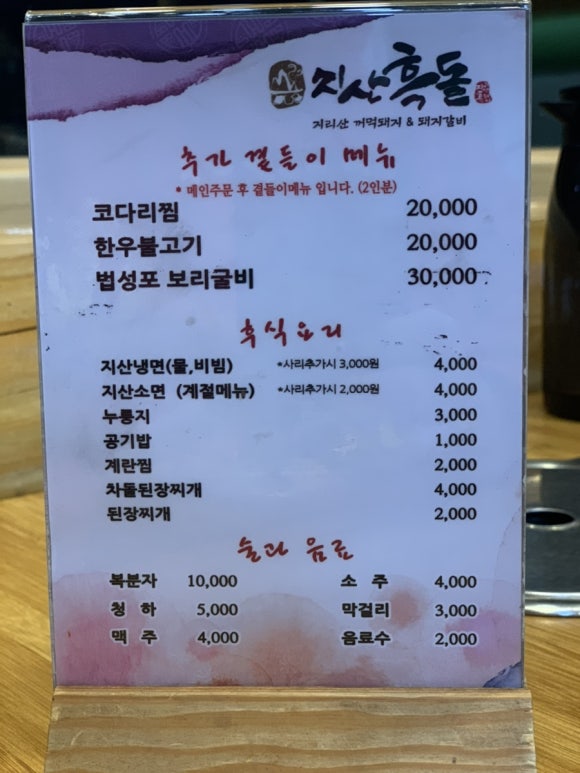 지산흑돌
지리산 꺼먹돼지 & 돼지갈비
추가 곁들이 메뉴
* 메인주문 후 곁들이메뉴 입니다. (2인분)
코다리찜 20,000
한우불고기 20,000
법성포 보리굴비 30,000
후식요리
지산냉면(물,비빔) *사리추가시 3,000원 4,000
지산소면 (계절메뉴) *사리추가시 2,000원 4,000
누룽지 3,000
공기밥 1,000
계란찜 2,000
차돌된장찌개 4,000
된장찌개 2,000
술과 음료
복분자 10,000 소 주 4,000
청 하 5,000 막걸리 3,000
맥 주 4,000 음료수 2,000